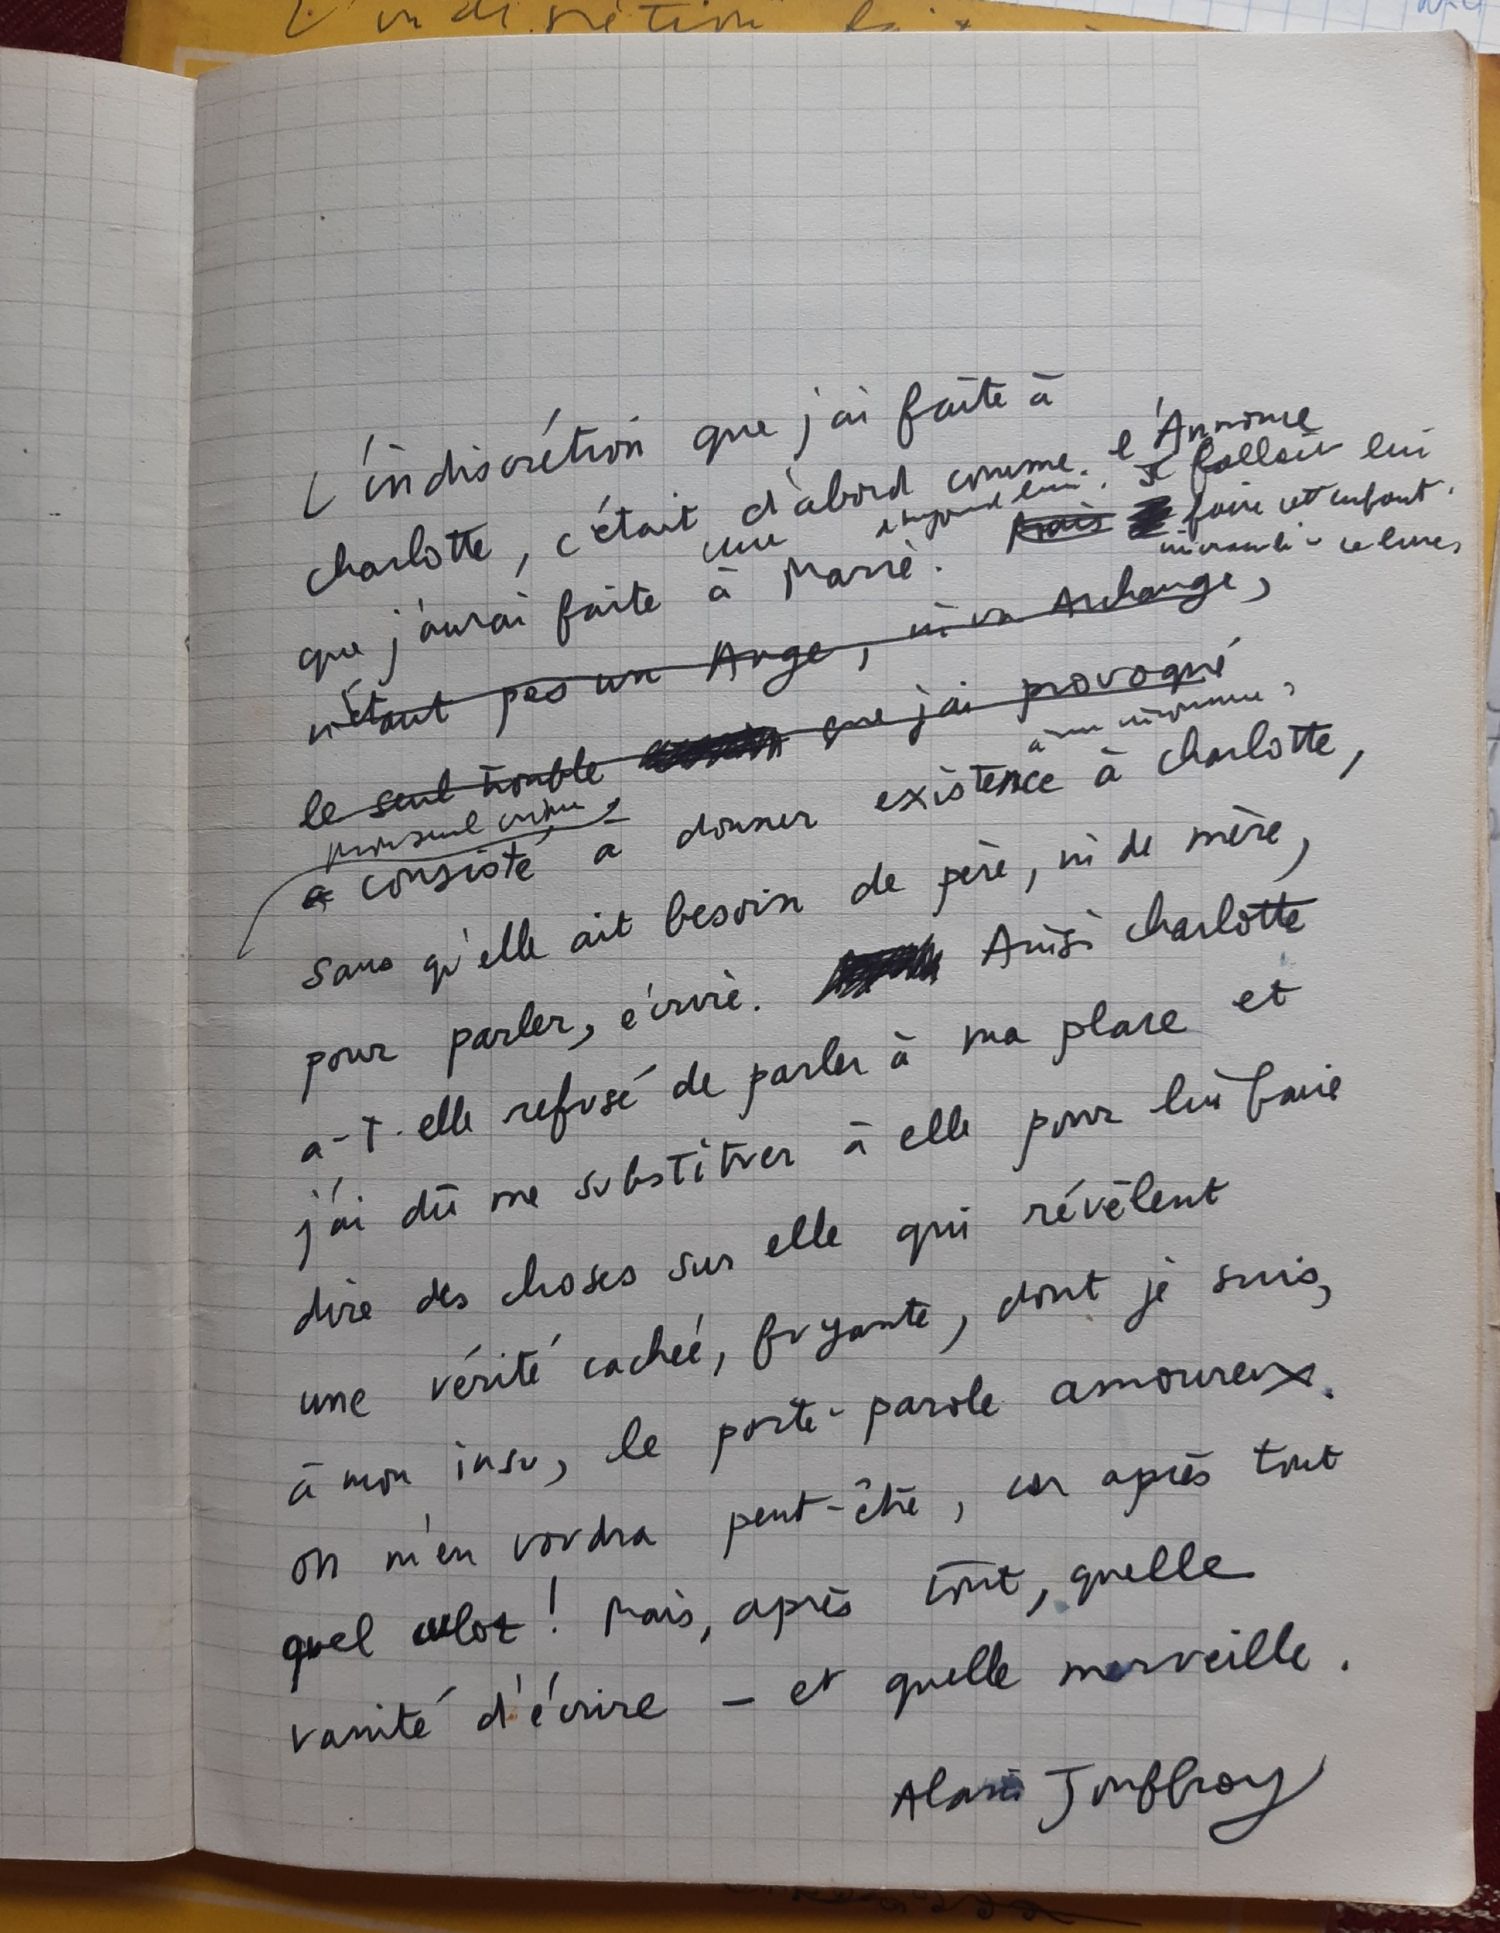 L'indiscrétion
L'indiscrétion que j'ai faite à
Charlotte, c'était d'abord comme l'Annonce
que j'aurai faite à une Marie. Il fallait lui
Mais faire cet enfant
ce livre
n'étant pas un Ange, ni un Archange,
le seul trouble que j'ai provoqué
mon seul crime à une inconnue,
a consisté à donner existence à Charlotte,
sans qu'elle ait besoin de père, ni de mère,
pour parler, écrire. Ainsi Charlotte
a-t-elle refusé de parler à ma place et
j'ai dû me substituer à elle pour lui faire
dire des choses sur elle qui révèlent
une vérité cachée, fuyante, dont je suis,
à mon insu, le porte-parole amoureux.
On m'en voudra peut-être, car après tout
quel culot ! Mais, après tout, quelle
vanité d'écrire – et quelle merveille.
Alain Jouffroy